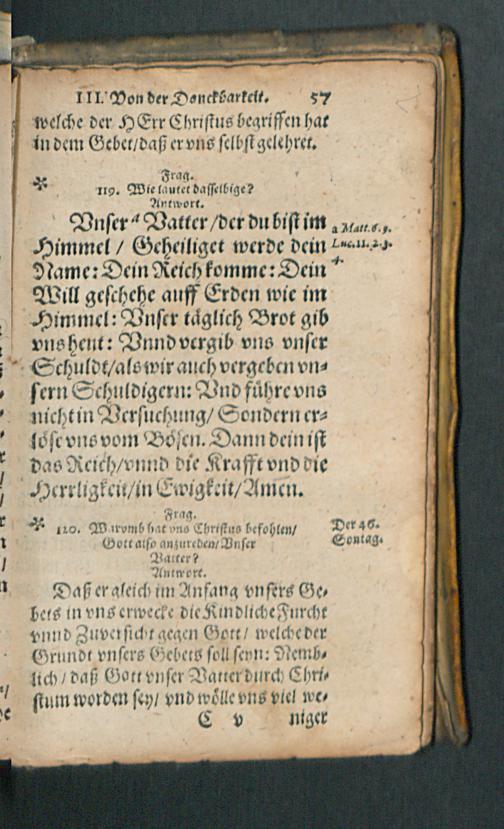 III. Von der Danckbarkeit. 57
welche der HErr Christus begriffen hat
in dem Gebet/daß er vns selbst gelehret.
Frag.
* 119. Wie lautet dasselbige?
Antwort.
Vnser a Vatter/der du bist im
a Matt.6.9.
Himmel / Geheiliget werde dein
Luc.11.2.3.
Name: Dein Reich komme: Dein
4.
Will geschehe auff Erden wie im
Himmel: Vnser täglich Brot gib
vns heut: Vnnd vergib vns vnser
Schuldt/als wir auch vergeben vn-
sern Schuldigern: Vnd führe vns
nicht in Versuchung/ Sondern er-
löse vns vom Bösen. Dann dein ist
das Reich/vnnd die Krafft vnd die
Herrligkeit/in Ewigkeit/Amen.
Frag.
* 120. Warumb hat vns Christus befohlen/
Der 46.
Gott also anzureden/Vnser
Sontag.
Vatter?
Antwort.
Daß er gleich im Anfang vnsers Ge-
bets in vns erwecke die Kindliche Furcht
vnnd Zuversicht gegen Gott/ welche der
Grundt vnsers Gebets soll seyn: Nemb-
lich / daß Gott vnser Vatter durch Chri-
stum worden sey/ vnd wölle vns viel we-
C v niger